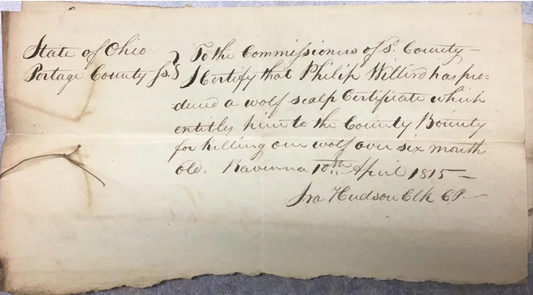 State of Ohio
Portage County ss.
To the Commissioners of sd. County —
I Certify that Philip Willird has pro-
duced a wolf scalp Certificate which
entitles him to the County Bounty
for killing one wolf over six month
old. Ravenna 10th April 1815 —
Ira Hudson Clk CP —